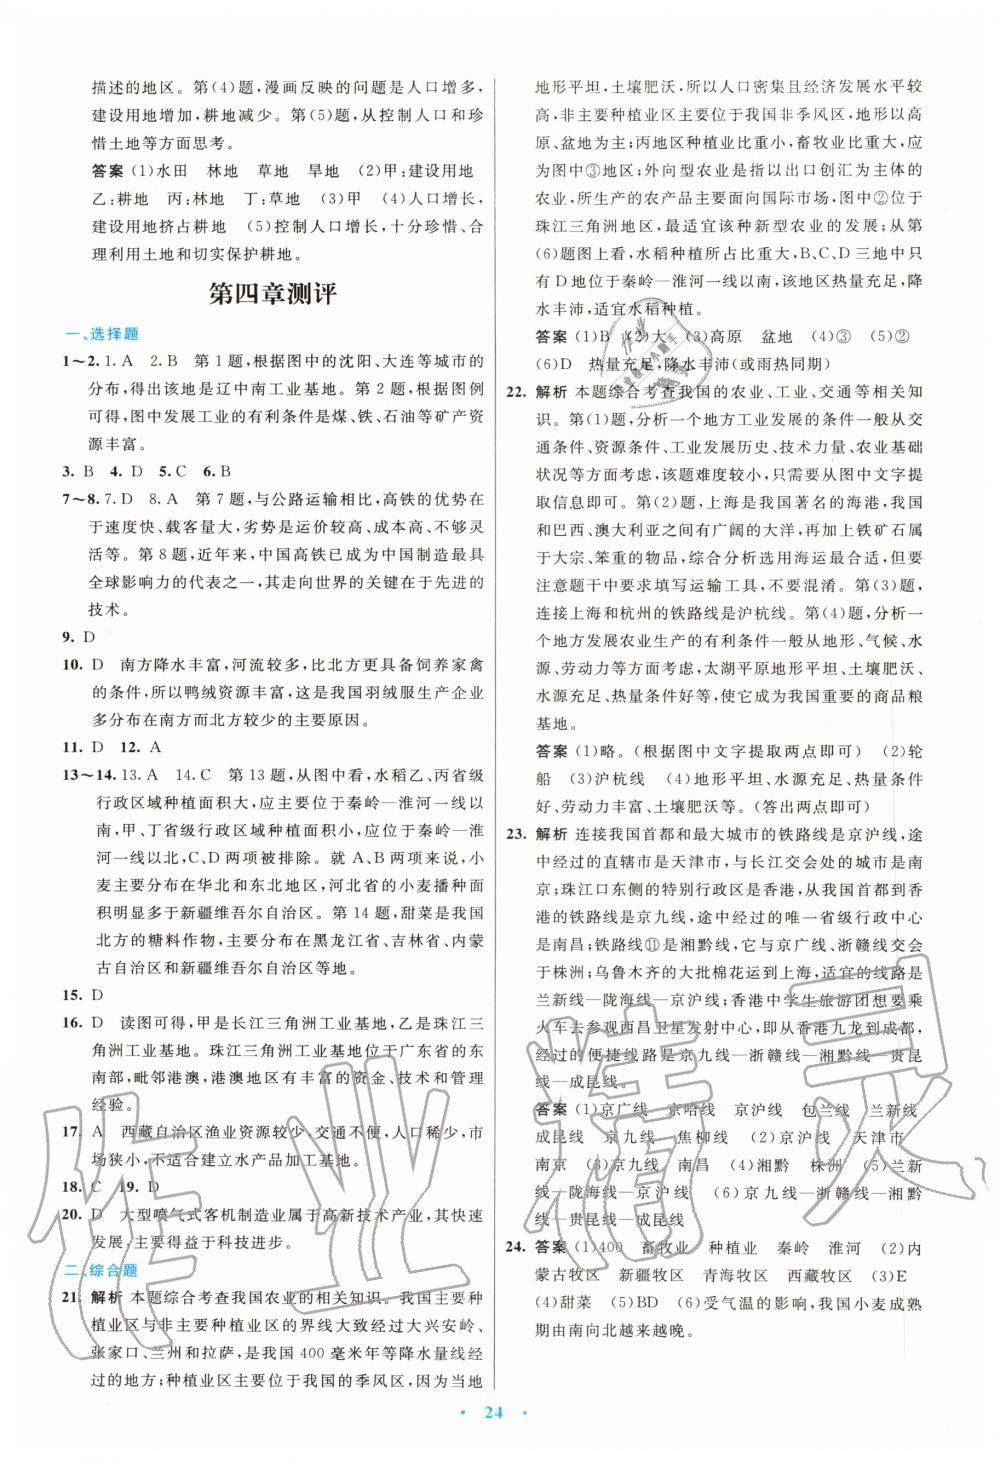 描述的地区。第(4)题,漫画反映的问题是人口增多,
建设用地增加,耕地减少。第(5)题,从控制人口和珍
惜土地等方面思考。
答案 (1)水田 林地 草地 旱地 (2)甲:建设用地
乙:耕地 丙:林地 丁:草地 (3)甲 (4)人口增长,
建设用地挤占耕地 (5)控制人口增长,十分珍惜、合
理利用土地和切实保护耕地。
第四章测评
一、选择题
1～2. 1. A 2. B 第1题,根据图中的沈阳、大连等城市的
分布,得出该地是辽中南工业基地。第2题,根据图例
可得,图中发展工业的有利条件是煤、铁、石油等矿产资
源丰富。
3. B 4. D 5. C 6. B
7～8. 7. D 8. A 第7题,与公路运输相比,高铁的优势在
于速度快、载客量大,劣势是运价较高、成本高、不够灵
活等。第8题,近年来,中国高铁已成为中国制造最具
全球影响力的代表之一,其走向世界的关键在于先进的
技术。
9. D
10. D 南方降水丰富,河流较多,比北方更具备饲养家禽
的条件,所以鸭绒资源丰富,这是我国羽绒服生产企业
多分布在南方而北方较少的主要原因。
11. D 12. A
13～14. 13. A 14. C 第13题,从图中看,水稻乙、丙省级
行政区域种植面积大,应主要位于秦岭—淮河一线以
南,甲、丁省级行政区域种植面积小,应位于秦岭—淮
河一线以北,C、D两项被排除。就A、B两项来说,小
麦主要分布在华北和东北地区,河北省的小麦播种面
积明显多于新疆维吾尔自治区。第14题,甜菜是我国
北方的糖料作物,主要分布在黑龙江省、吉林省、内蒙
古自治区和新疆维吾尔自治区等地。
15. D
16. D 读图可得,甲是长江三角洲工业基地,乙是珠江三
角洲工业基地。珠江三角洲工业基地位于广东省的东
南部,毗邻港澳,港澳地区有丰富的资金、技术和管理
经验。
17. A 西藏自治区渔业资源较少,交通不便,人口稀少,市
场狭小,不适合建立水产品加工基地。
18. C 19. D
20. D 大型喷气式客机制造业属于高新技术产业,其快速
发展,主要得益于科技进步。
二、综合题
21. 解析 本题综合考查我国农业的相关知识。我国主要种
植业区与非主要种植业区的界线大致经过大兴安岭、
张家口、兰州和拉萨,是我国400毫米年等降水量线经
过的地方;种植业区主要位于我国的季风区,因为当地
地形平坦,土壤肥沃,所以人口密集且经济发展水平较
高,非主要种植业区主要位于我国非季风区,地形以高
原、盆地为主;丙地区种植业比重小,畜牧业比重大,应
为图中③地区;外向型农业是指以出口创汇为主体的
农业,所生产的农产品主要面向国际市场,图中②位于
珠江三角洲地区,最适宜该种新型农业的发展。从第
(6)题图上看,水稻种植所占比重大,B、C、D三地中只
有D地位于秦岭—淮河一线以南,该地区热量充足,降
水丰沛,适宜水稻种植。
答案 (1)B (2)大 (3)高原 盆地 (4)③ (5)②
(6)D 热量充足,降水丰沛(或雨热同期)
22. 解析 本题综合考查我国的农业、工业、交通等相关知
识。第(1)题,分析一个地方工业发展的条件一般从交
通条件、资源条件、工业发展历史、技术力量、农业基础
状况等方面考虑,该题难度较小,只要从图中文字提
取信息即可。第(2)题,上海是我国著名的海港,我国
和巴西、澳大利亚之间有广阔的大洋,再加上铁矿石属
于大宗、笨重的物品,综合分析选用海运最合适,但要
注意题干中要求填写运输工具,不要混淆。第(3)题,
连接上海和杭州的铁路线是沪杭线。第(4)题,分析一
个地方发展农业生产的有利条件一般从地形、气候、水
源、劳动力等方面考虑,太湖平原地形平坦、土壤肥沃、
水源充足、热量条件好等,使它成为我国重要的商品粮
基地。
答案 (1)略。(根据图中文字提取两点即可) (2)轮
船 (3)沪杭线 (4)地形平坦、水源充足、热量条件
好、劳动力丰富、土壤肥沃等。(答出两点即可)
23. 解析 连接我国首都和最大城市的铁路线是京沪线,途
中经过的直辖市是天津市,与长江交会处的城市是南
京;珠江口东侧的特别行政区是香港,从我国首都到香
港的铁路线是京九线,途中经过的唯一省级行政中心
是南昌;铁路线⑪是湘黔线,它与京广线、浙赣线交会
于株洲;乌鲁木齐的大批棉花运到上海,适宜的线路是
兰新线—陇海线—京沪线;香港中学生旅游团想要乘
火车去参观西昌卫星发射中心,从香港九龙到成都,
经过的便捷线路是京九线—浙赣线—湘黔线—贵昆
线—成昆线。
答案 (1)京广线 京哈线 京沪线 包兰线 兰新线
成昆线 京九线 焦柳线 (2)京沪 天津市
南京 (3)京九线 南昌 (4)湘黔 株洲 (5)兰新
线—陇海线—京沪线 (6)京九线—浙赣线—湘黔
线—贵昆线—成昆线
24. 答案 (1)400 畜牧业 种植业 秦岭 淮河 (2)内
蒙古牧区 新疆牧区 青海牧区 西藏牧区 (3)E
(4)甜菜 (5)BD (6)受气温的影响,我国小麦成熟
期由南向北越来越晚。
24
作业精灵